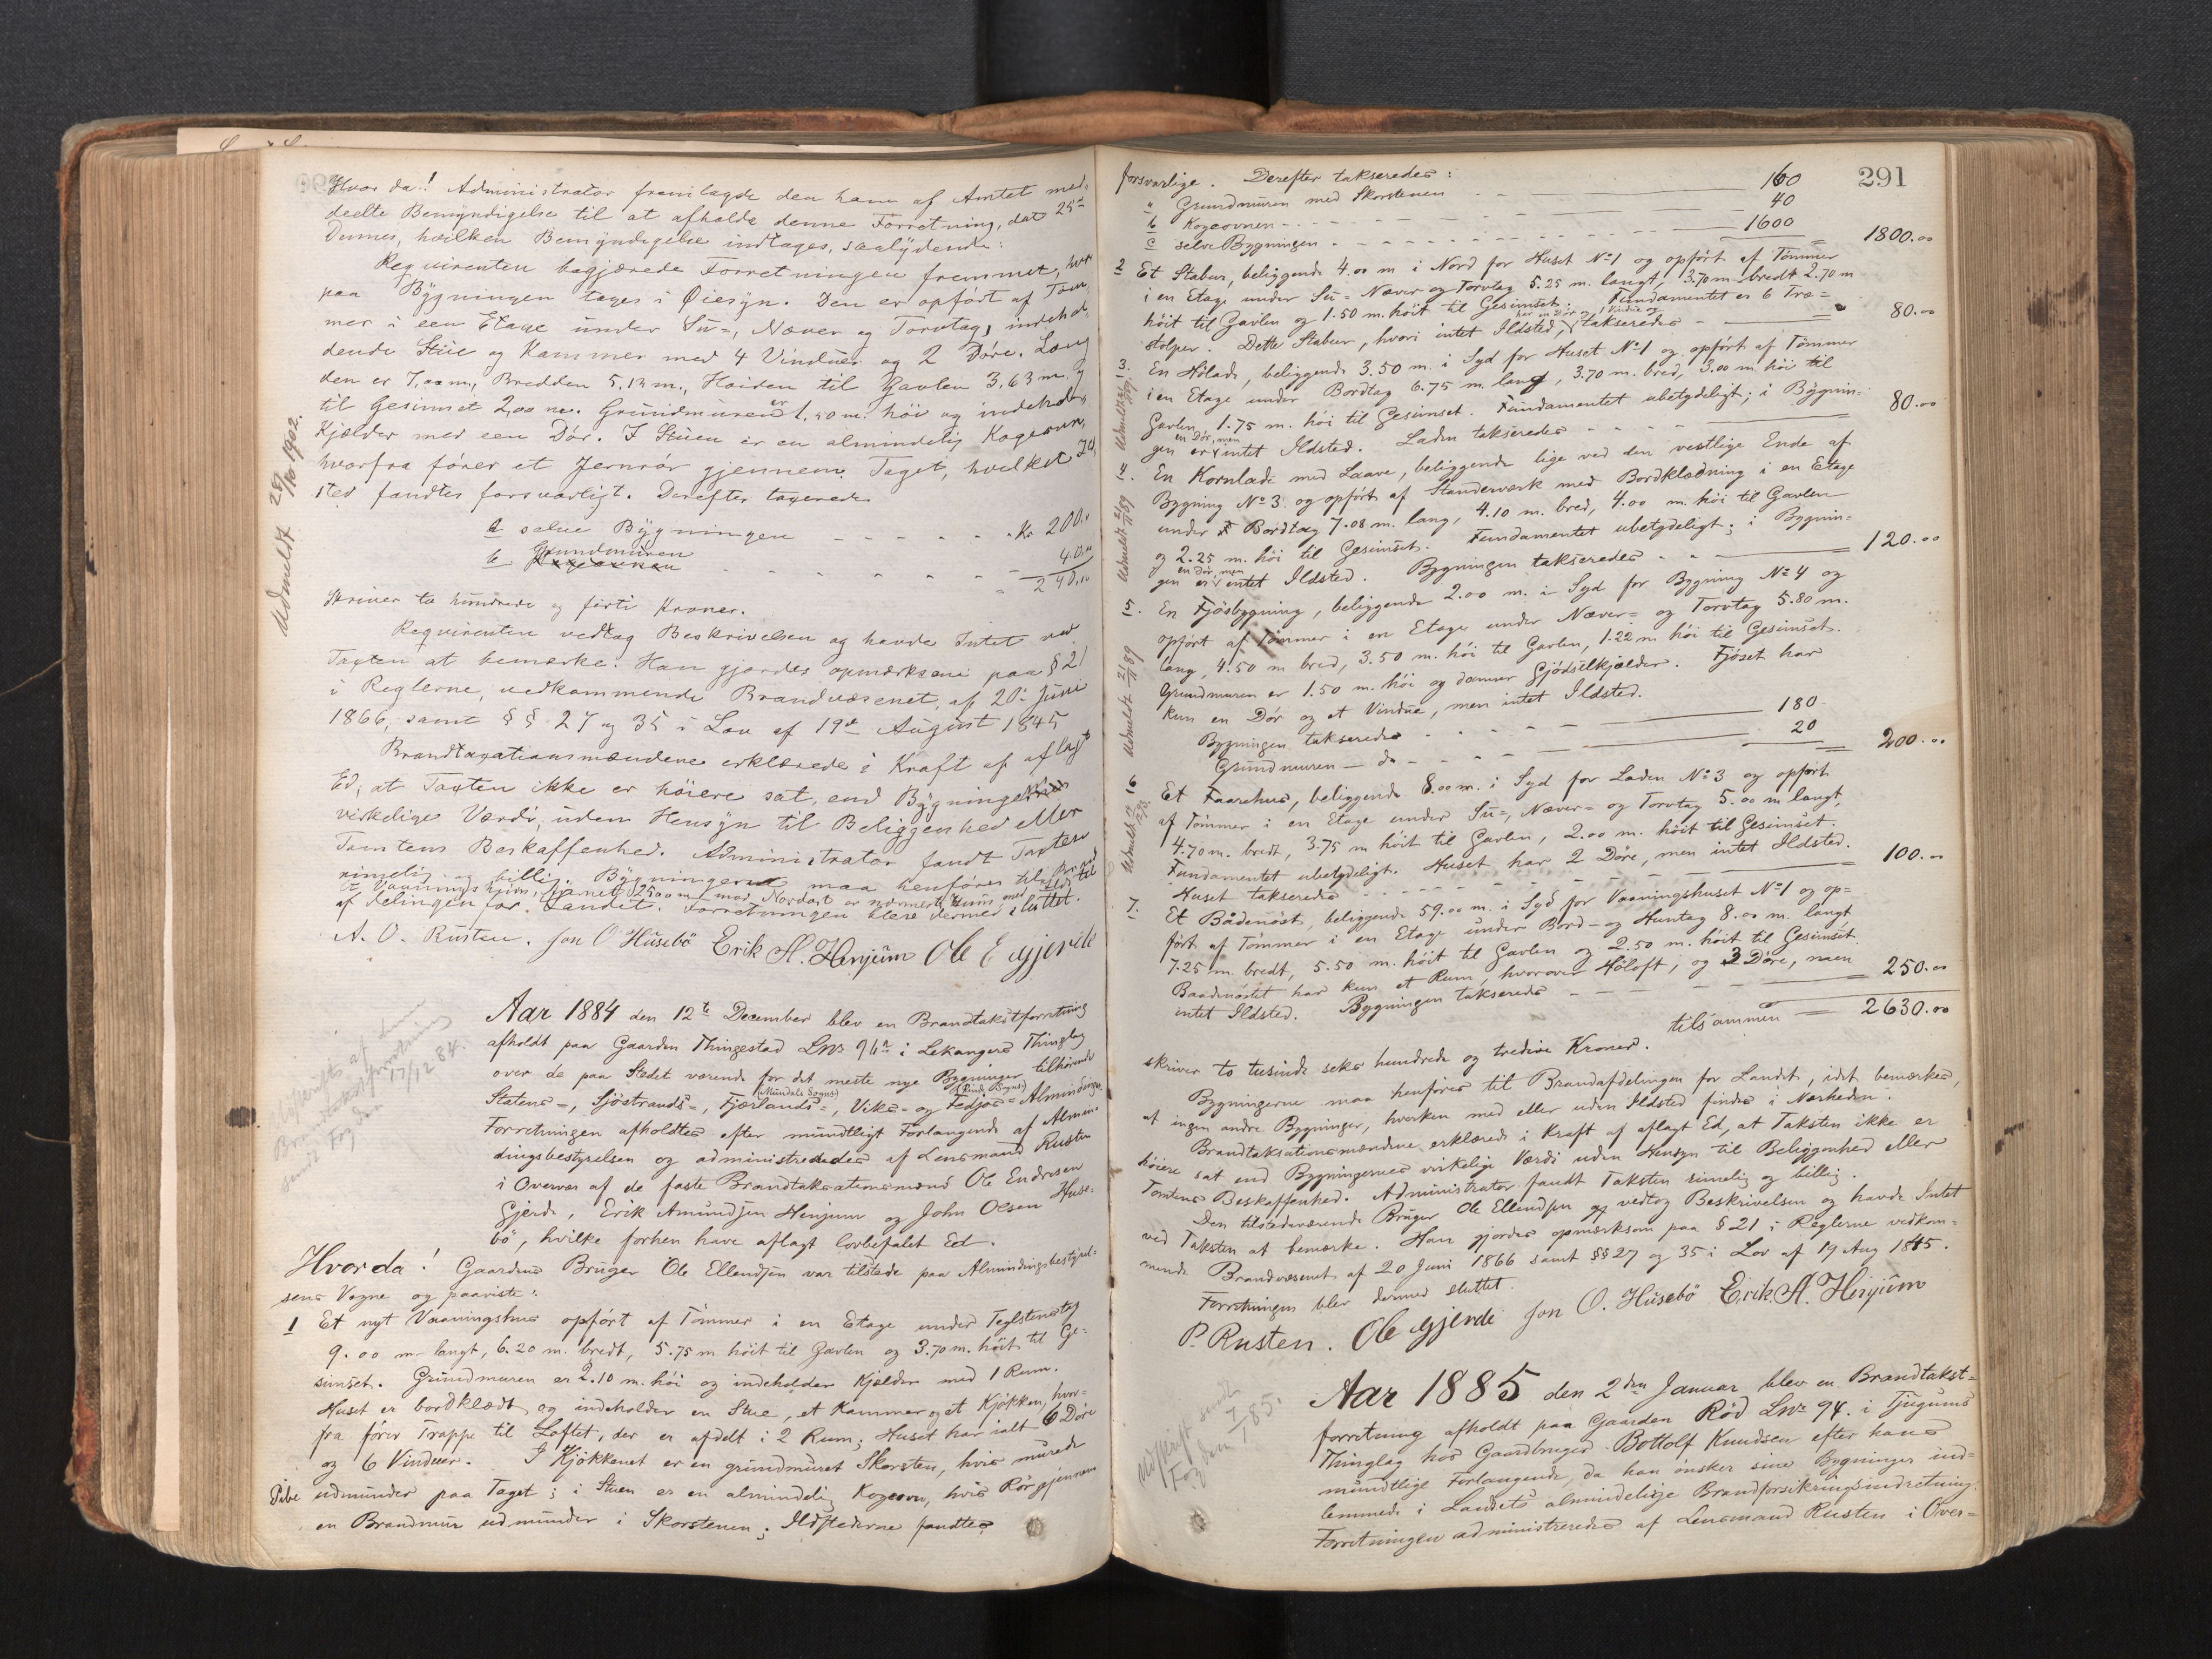 Hvor da! Administrator fremlagde den ham af Amtet med-
deelte Bemyndigelse til at afholde denne Forretning, dat 25de
Dennes, hvilken Bemyndigelse indtages, saalydende:
Requirenten begjærede Forretningen fremmet, hvor
paa Bygningen toges i Øiesyn. Den er opført af Tøm
mer i een Etage under Su-, Næver og Torvtag, indehol
dende Stue og Kammer med 4 Vinduer og 2 Døre. Læng
den er 7,00 m., Bredden 5.13 m., Høiden til Gavlen 3.63 m. og
til Gesimset 2,00 m. Grundmuren er 1.50 m. høi og indeholder
Kjælder med een Dør. I Stuen er en almindelig Kogeovn,
hvorfra fører et Jernrør gjennem Taget, hvilket Ild
sted fandtes forsvarligt. Derefter taxeredes
a selve Bygningen - - - - - Kr 200.00
b Grundmuren Kogeovnen - - - - - 40.00
240.00
Skriver to hundrede og førti Kroner.
Requirenten vedtog Beskrivelsen og havde Intet ved
Taxten at bemærke. Han gjordes opmærksom paa § 21
i Reglerne, vedkommende Brandvæsenet, af 20de Juni
1866, samt §§ 27 og 35 i Lov af 19de August 1845
Brandtaxationsmændene erklærede i Kraft af aflagt
Ed, at Taxten ikke er høiere sat, end Bygningens
virkelige Værdi, uden Hensyn til Beliggenhed eller
Tomtens Beskaffenhed. Administrator fandt Taxten
rimelig og billig. Bygningerne maa henføres til Brand
afdelingen for Landet. Forretningen blev dermed sluttet.
A. O. Rusten. Jon O Husebö Erik A. Henjum Ole E Gjerde
Udmeldt 28/10 1902.
Aar 1884 den 12te December blev en Brandtakstforretning
afholdt paa Gaarden Thingestad LNo 96a i Lekangers Thinglag
over de paa Stedet værende for det meste nye Bygninger tilhørende
(Mundals Sogns) (Sogns)
Statens-, Sjöstrands-, Fjærlands-, Viks- og Fedjos- Almindinge.
Forretningen afholdtes efter mundtligt Forlangende af Almin-
dingsbestyrelsen og administreredes af Lensmand Rusten
i Overvær af de faste Brandtaksationsmænd Ole Endresen
Gjerde, Erik Amundsen Henjum og John Olsen Huse-
bö, hvilke forhen have aflagt lovbefalet Ed.
17/12 84.
Hvor da! Gaardens Bruger Ole Ellendsen var tilstede paa Almindingsbestyrel-
sens Vegne og paaviste:
1 Et nyt Vaaningshus opført af Tømmer i en Etage under Teglstenstag
9.00 m. langt, 6.20 m. bredt, 5.75 m høit til Gavlen og 3.70 m. høit til Ge-
simset. Grundmuren er 2.10 m. høi og indeholder Kjælder med 1 Rum.
Huset er bordklædt og indeholder en Stue, et Kammer og et Kjøkken, hvor-
fra fører Trappe til Loftet, der er afdelt i 2 Rum; Huset har ialt 6 Døre
og 6 Vinduer. I Kjøkkenet er en grundmuret Skorsten, hvis murede
Pibe udmunder paa Taget; i Stuen er en almindelig Kogeovn, hvis Rør gjennem
en Brandmur udmunder i Skorstenen; Ildstederne fandtes
291
forsvarlige. Derefter takseredes:
a Grundmuren med Skorstenen - - 160
b Kogeovnen - - - 40
c selve Bygningen - - - 1600 = 1800.00
2 Et Stabur, beliggende 4.00 m i Nord for Huset No 1 og opført af Tømmer
i en Etage under Su- Næver og Torvtag 5.25 m. langt, 3.70 m bredt 2.70 m
høit til Gavlen og 1.50 m. høit til Gesimset. Fundamentet er 6 Træ-
har en Dør og 1 Vindue og
stolper. Dette Stabur, hvori intet Ildsted, takseredes - 80.00
3. En Hölade, beliggende 3.50 m. i Syd for Huset No 1 og opført af Tømmer
i en Etage under Bordtag 6.75 m. lang, 3.70 m. bred, 3.00 m. høi til
Gavlen, 1.75 m. høi til Gesimset. Fundamentet ubetydeligt; i Bygnin-
en Dør, men
gen er intet Ildsted. Laden takseredes - - - 80.00
4. En Kornlade med Laave, beliggende lige ved den vestlige Ende af
Bygning No 3 og opført af Standerværk med Bordklædning i en Etage
under Bordtag 7.08 m. lang, 4.10 m. bred, 4.00 m. høi til Gavlen
og 2.25 m. høi til Gesimset. Fundamentet ubetydeligt; i Bygnin-
en Dør, men
gen er intet Ildsted. Bygningen takseredes - - 120.00
5. En Fjøsbygning, beliggende 2.00 m. i Syd for Bygning No 4 og
opført af Tømmer i en Etage under Næver- og Torvtag 5.80 m.
lang, 4.50 m bred, 3.50 m. høi til Gavlen, 1.22 m høi til Gesimset.
Grundmuren er 1.50 m. høi og danner Gjødselkjælder. Fjøset har
kun en Dør og et Vindue, men intet Ildsted.
Bygningen takseredes - - - 180
Grundmuren - do - - - 20 = 200.00
6 Et Faarehus, beliggende 8.00 m. i Syd for Laden No 3 og opført
af Tømmer i en Etage under Su-, Næver- og Torvtag 5.00 m langt,
4.70 m. bredt, 3.75 m høit til Gavlen, 2.00 m. høit til Gesimset.
Fundamentet ubetydeligt. Huset har 2 Døre, men intet Ildsted.
Huset takseredes - - - 100.00
7. Et Bådenøst, beliggende 59.00 m. i Syd for Vaaningshuset No 1 og op-
ført af Tømmer i en Etage under Bord- og Huntag 8.00 m. langt
7.25 m. bredt, 5.50 m. høit til Gavlen og 2.50 m. høit til Gesimset
Baadenøstet har kun et Rum, hvorover Höloft, og 3 Døre, men
intet Ildsted. Bygningen takseredes - - - 250.00
tilsammen = 2630.00
Udmeldt 21/11 89
Udmeldt 21/11 89
skriver to tusinde seks hundrede og tredive Kroner.
Bygningerne maa henføres til Brandafdelingen for Landet, idet bemærkes,
at ingen andre Bygninger, hverken med eller uden Ildsted findes i Nærheden.
Brandtaksationsmændene erklærede i Kraft af aflagt Ed, at Taksten ikke er
høiere sat end Bygningernes virkelige Værdi uden Hensyn til Beliggenhed eller
Tomtens Beskaffenhed. Administrator fandt Taksten rimelig og billig.
Den tilstedeværende Bruger Ole Ellendsen vedtog Beskrivelsen og havde Intet
ved Taksten at bemærke. Han gjordes opmærksom paa § 21 i Reglerne vedkom-
mende Brandvæsenet af 20 Juni 1866 samt §§ 27 og 35 i Lov af 19 Aug 1845.
Forretningen blev dermed sluttet.
P. Rusten. Ole Gjerde Jon O. Husebö Erik A. Henjum
Udskrift sendt
Fogden 7/1 85.
Aar 1885 den 2den Januar blev en Brandtakst-
forretning afholdt paa Gaarden Röd LNo 94. i Tjugums
Thinglag hos Gaardbruger Bottolf Knudsen efter hans
mundtlige Forlangende, da han ønsker sine Bygninger ind-
lemmede i Landets almindelige Brandforsikringsindretning.
Forretningen administreredes af Lensmand Rusten i Over-